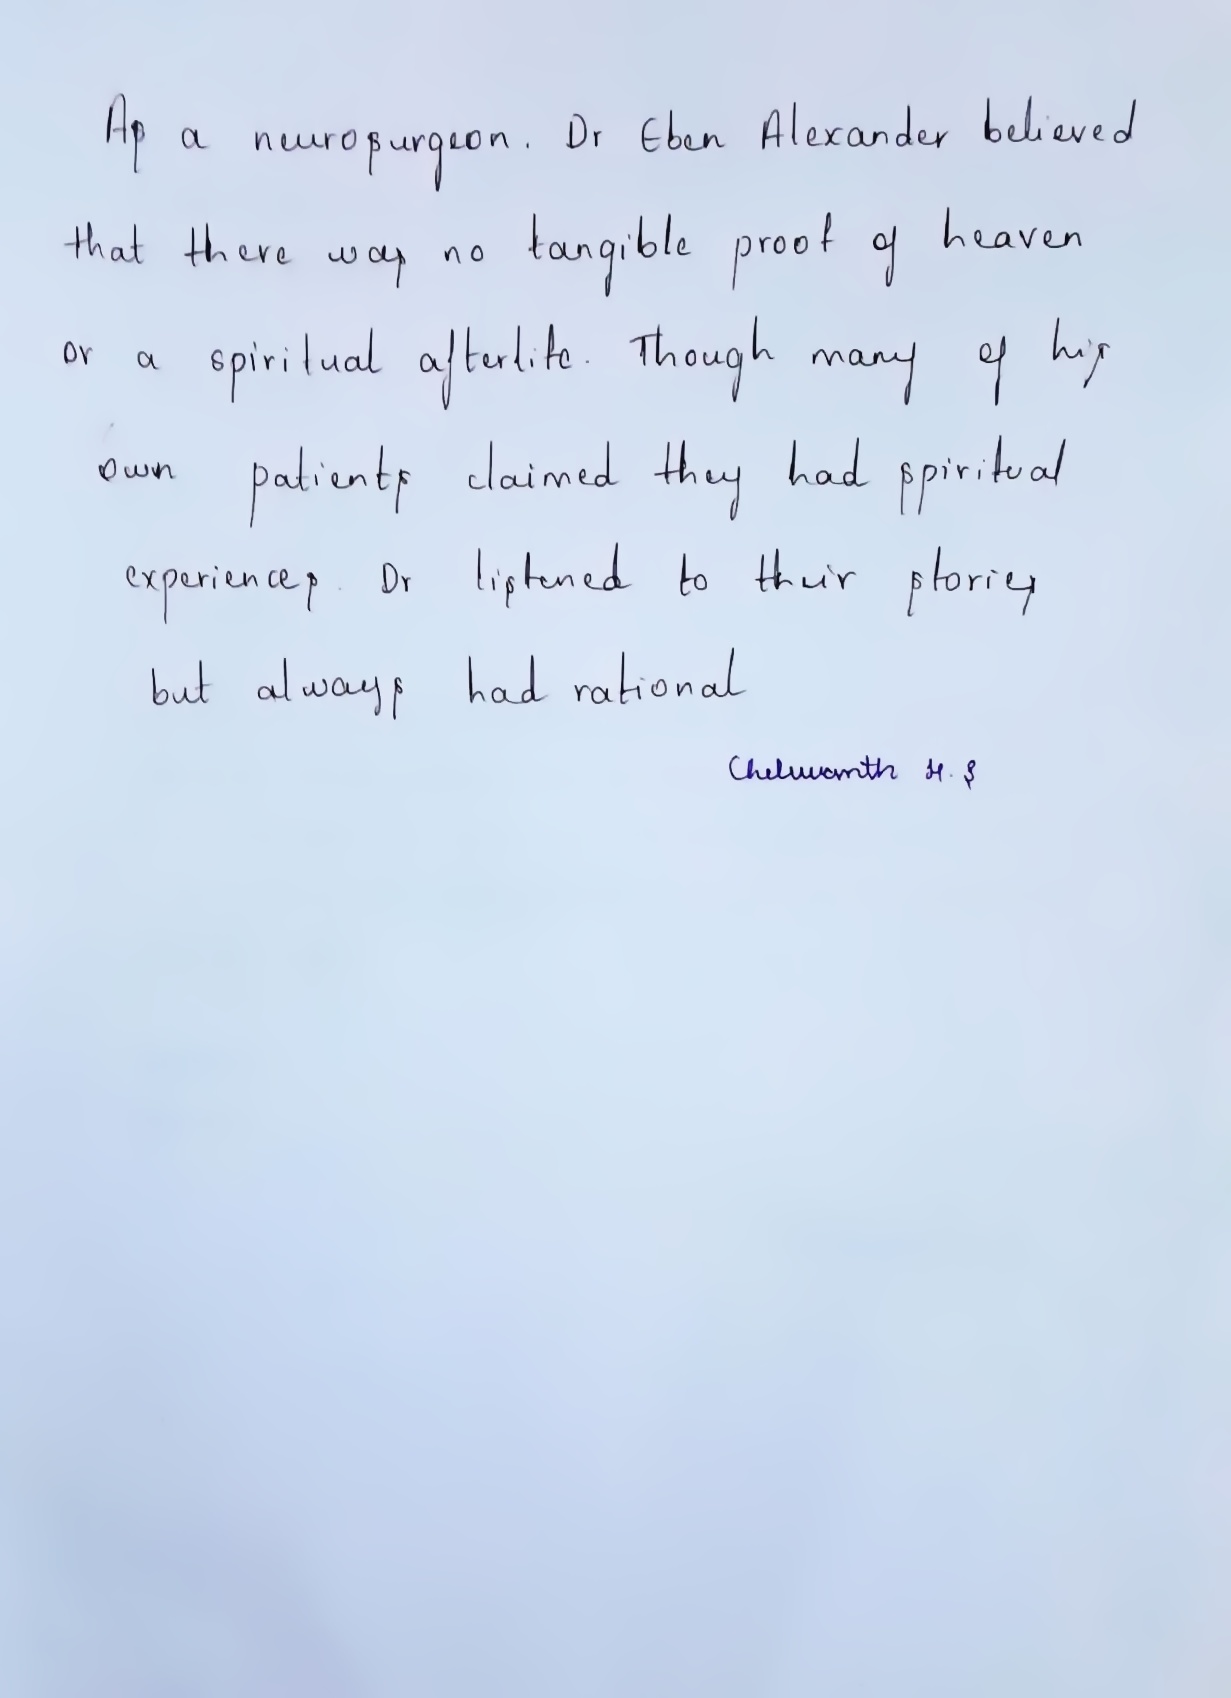 As a neurosurgeon. Dr Eben Alexander believed
that there was no tangible proof of heaven
or a spiritual afterlife. Though many of his
own patients claimed they had spiritual
experiences. Dr listened to their stories
but always had rational
Chelwamth H. S